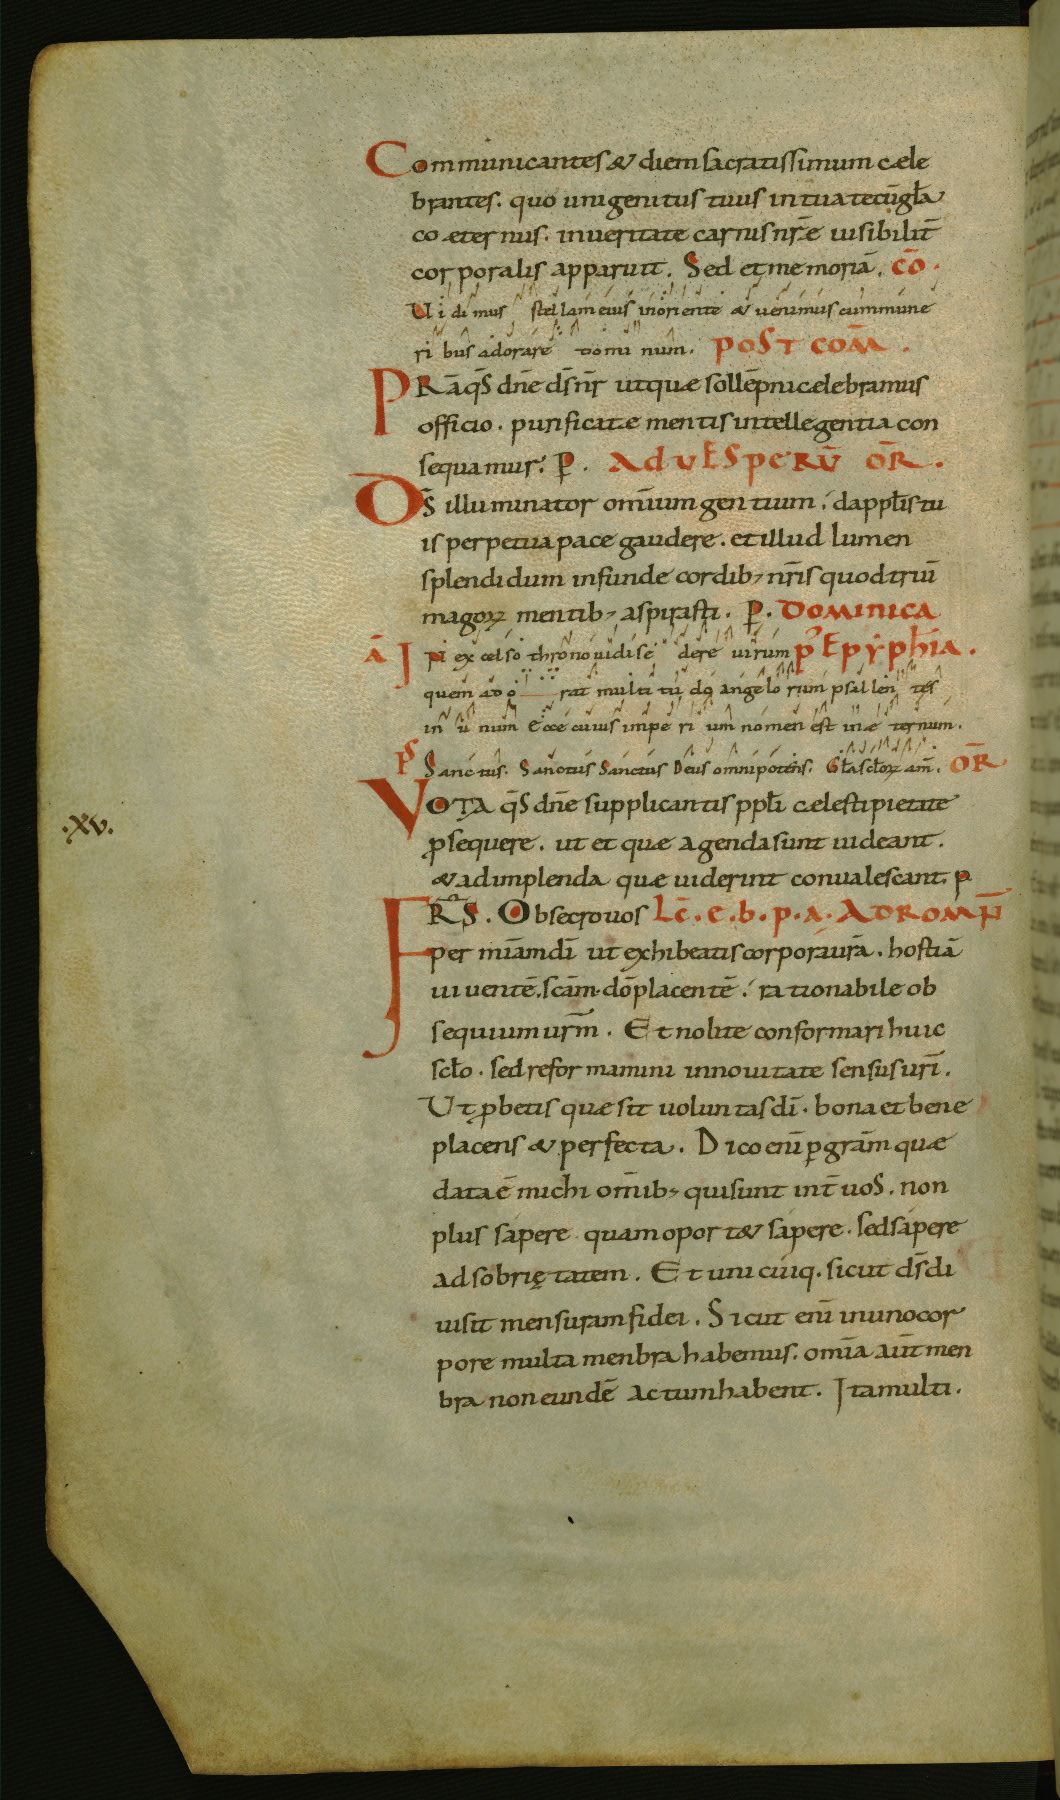 Communicantes & diem sacratissimum cæle
brantes. quo unigenitus tuus in tua tecū gl̄a
coæternus. in ueritate carnis nr̄ę uisibilit̄
corporalis apparuit. Sed et memoriā. cō.
Vidimus stellam eius in oriente & uenimus cum mune
ribus adorare dominum. post com̄.
PRĀ q̄s dn̄e ds̄ nr̄ ut quæ sollēpni cælebramus
officio. purificatæ mentis intellegentia con
sequamur. P̄. Ad uesperū or̄.
Ds̄ illuminator omīum gentium. da ppl̄is tu
is perpetua pace gaudere. et illud lumen
splendidum infunde cordib; nr̄is quod triū
magoꝝ mentib; aspirasti. P̄. Dominica
ā In excelso throno uidi sedere uirum p̄ Epyphīa.
quem ador at multitudo angelorum psallentes
in unum Ecce cuius imperium nomen est in æternum.
Ps̄ Sanctus. Sanctus Sanctus Deus omnipotens. Gl̄a scl̄oꝝ am̄. or̄
VOTA q̄s dn̄e supplicantis ppl̄i cælesti pietate
ꝓsequere. ut et quæ agenda sunt uideant.
·xv·
& ad implenda quæ uiderint conualescant. p̄
FR̄S. Obsecro uos Lc̄. e. b. p. a. Ad rom̄
per mīam dī ut exhibeatis corpora ur̄a. hostiā
uiuentē. scām. dō placentē. rationabile ob
sequium urm̄. Et nolite conformari huic
scl̄o. sed reformamini in nouitate sensus urī.
Ut ꝓbetis quæ sit uoluntas dī. bona et bene
placens & perfecta. Dico enī ꝑ grām quæ
data ē michi om̄ib; qui sunt int̄ uos. non
plus sapere quam oport& sapere. sed sapere
ad sobrię tatem. Et unicuiq. sicut ds̄ di
uisit mensuram fidei. Sicut enī in uno cor
pore multa menbra habemus. omīa aut̄ men
bra non eundē actum habent. Ita multi.